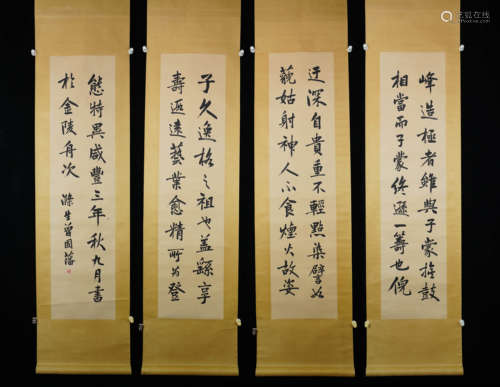 子久逸格之祖也盖繇享
壽遐遠藝業愈精所以登
峰造極者雖與子蒙旌鼓
相當而子蒙終遜一籌也倪
迂深自貴重不輕點染譬如
藐姑射神人不食煙火故姿
態特異咸豐三年秋九月書
於金陵舟次 滌生曾國藩